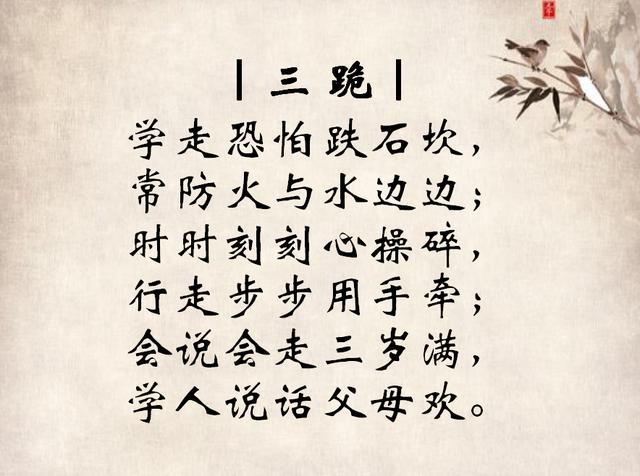 |三跪|
学走恐怕跌石坎，
常防火与水边边；
时时刻刻心操碎，
行走步步用手牵；
会说会走三岁满，
学人说话父母欢。